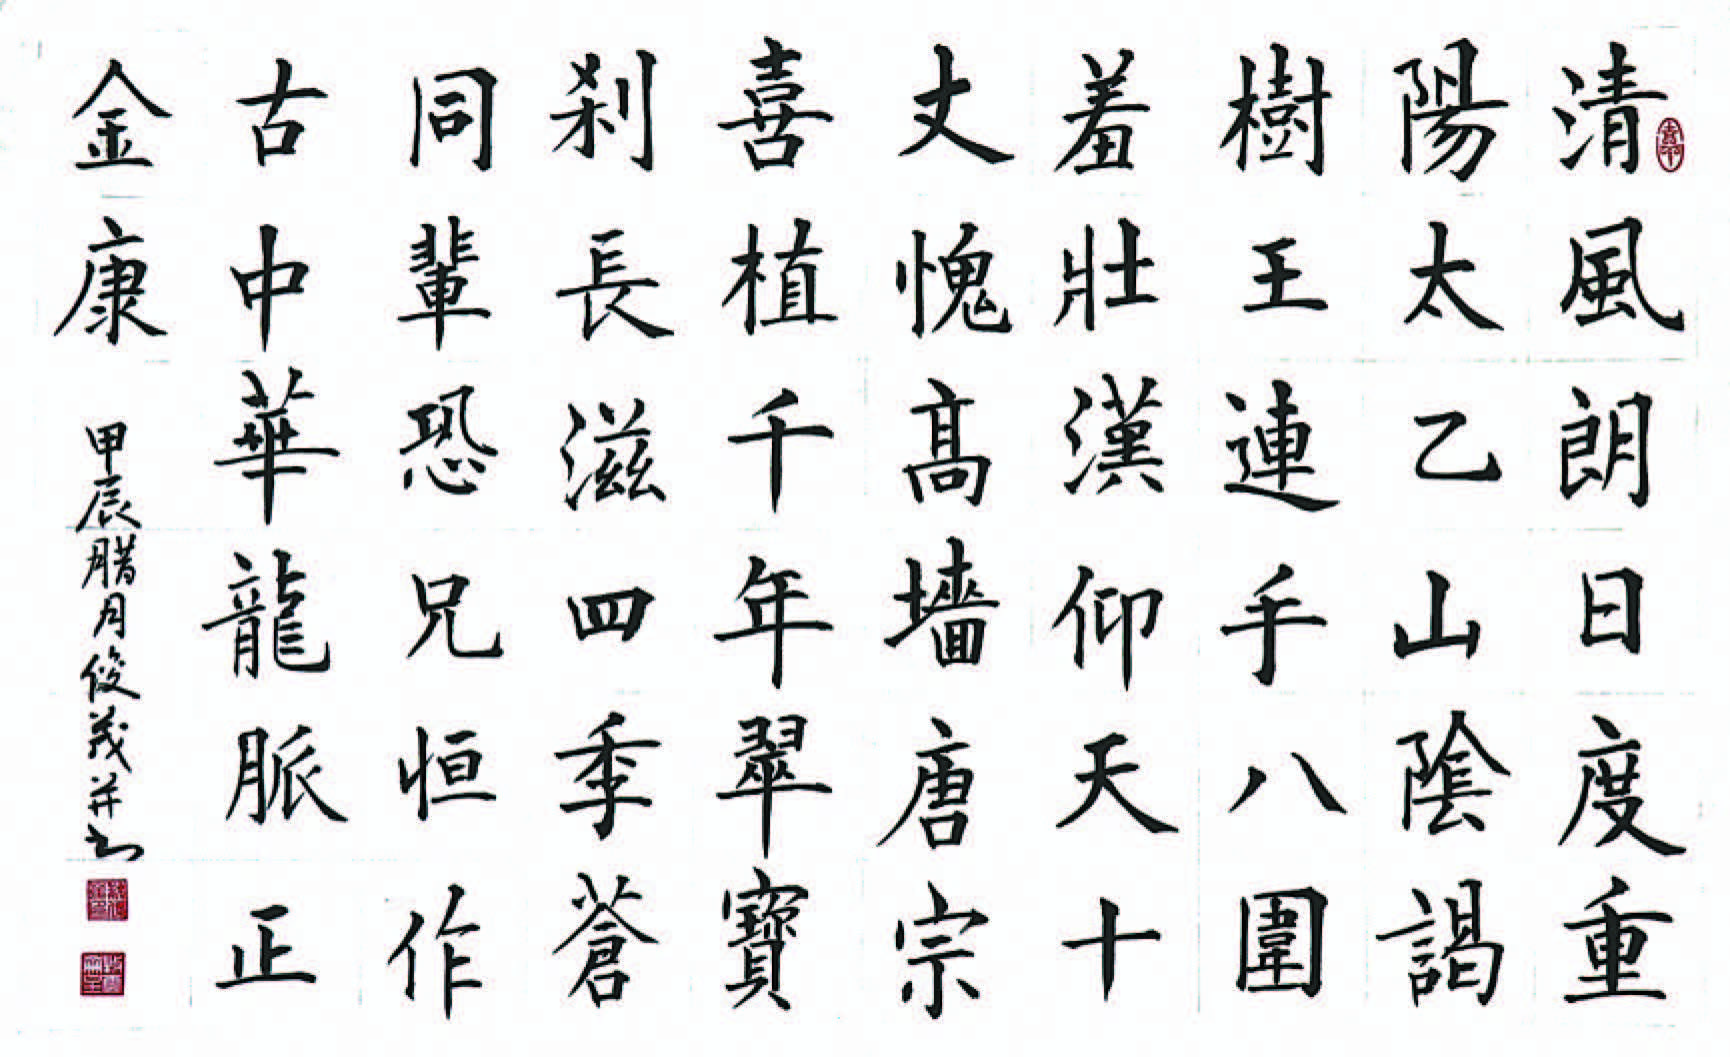 清風朗日度重
陽太乙山陰謁
樹王連手八圍
羞壯漢仰天十
丈愧高墻唐宗
喜植千年翠寶
刹長滋四季蒼
同輩恐兄恒作
古中華龍脈正
金康
甲辰腊月俊義并书